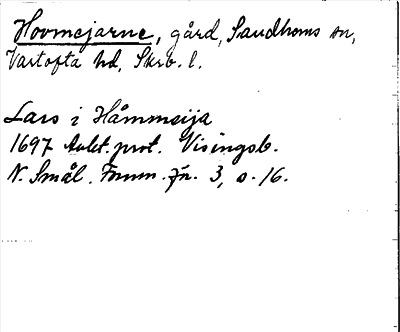 Hovmejarne, gård, Sandhems sn,
Vartofta hd, Skrb. l.
Lars i Håmmeija
1697 Avlet. prot. Visingsb.
N. Smål. Fornm. fn. 3, s. 16.